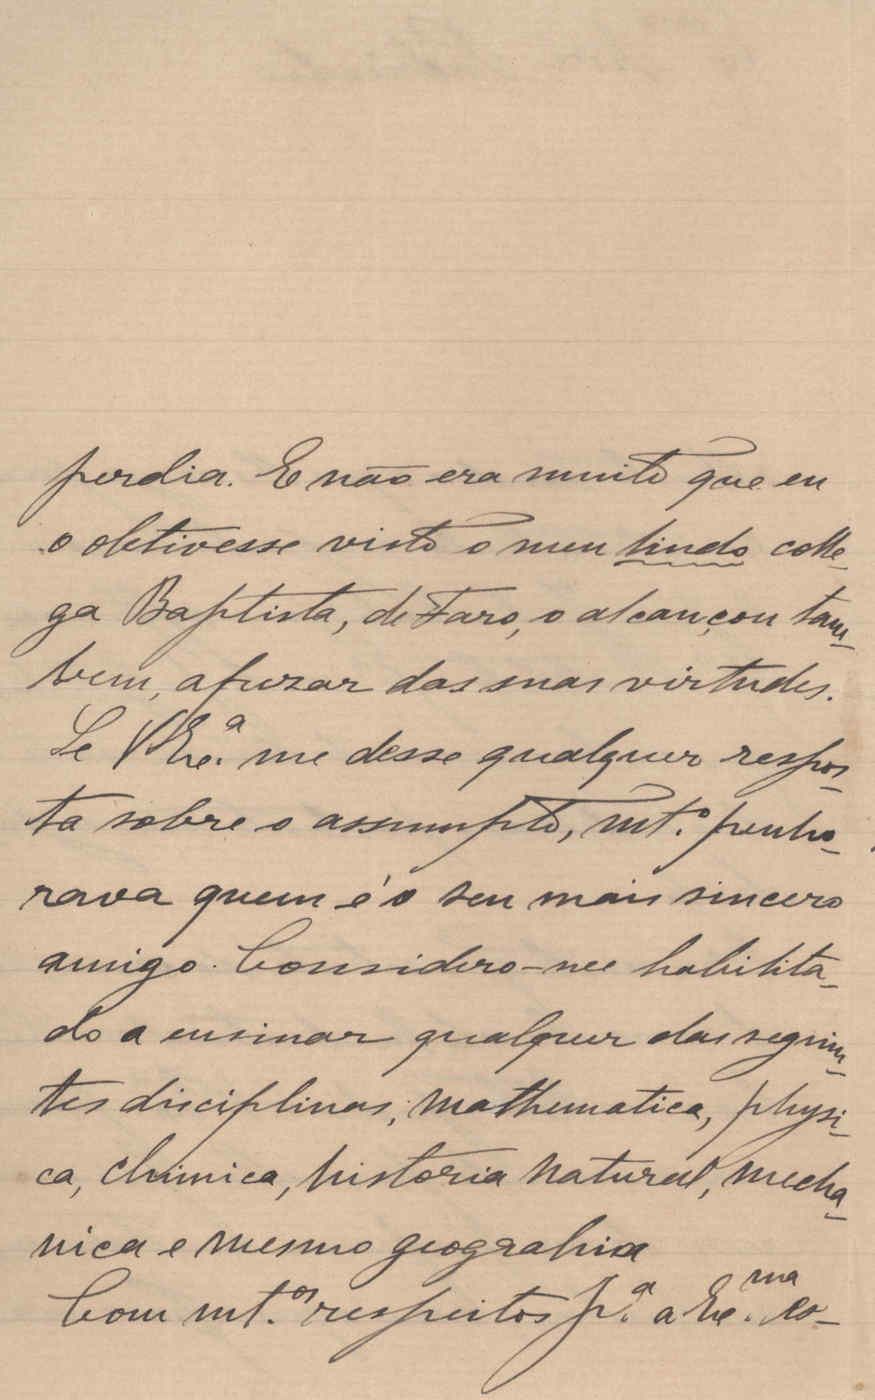 perdia. E não era muito que eu
o obtivesse visto o meu lindo colle-
ga Baptista, de Faro, o alcançou tam-
bem, apezar das suas virtudes.
Se V Exc.ª me desse qualquer respos-
ta sobre o assumpto, mt.º penho-
rava quem é o seu mais sincero
amigo. Considero-me habilita-
do a ensinar qualquer das seguin-
tes disciplinas; mathematica, physi-
ca, chimica, historia natural, mecha-
nica e mesmo geographia
Com mt.os respeitos p.ª a Exc.ma co-